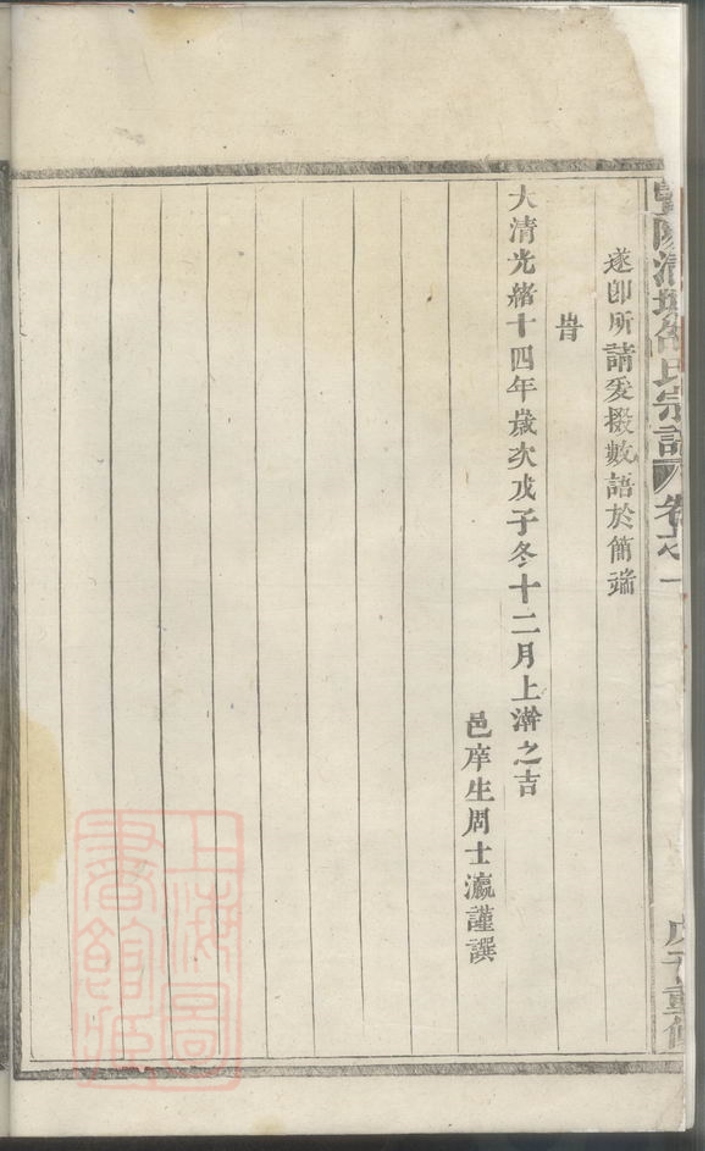 遂卽所請爰掇數語於簡端
旹
大清光緒十四年歲次戊子冬十二月上澣之吉
邑庠生周士瀛謹譔
宗譜
卷之一
戊子重修
上海圖
書館藏